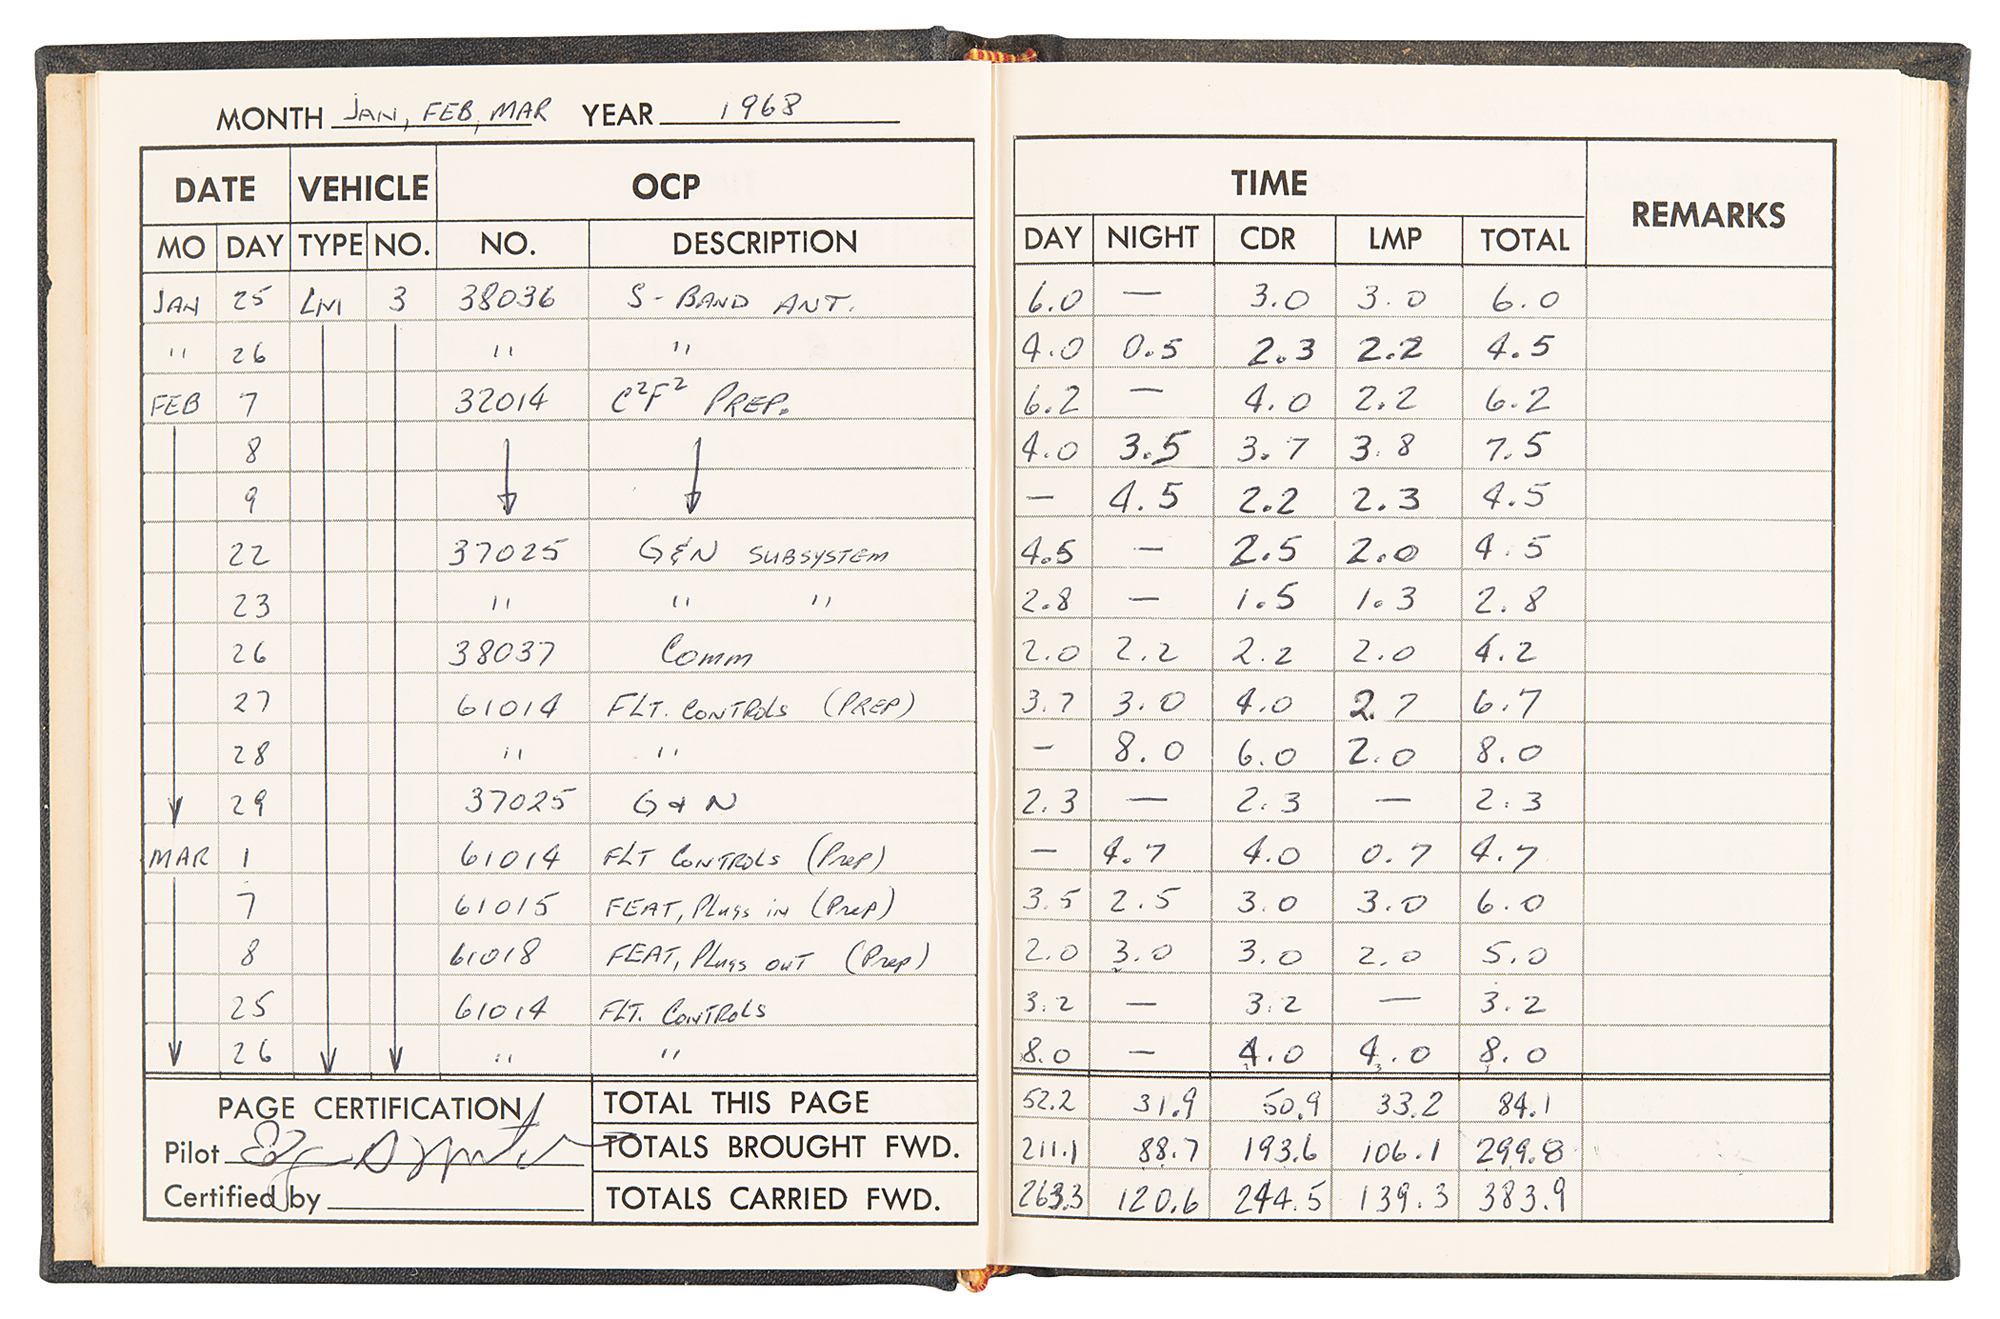 MONTH JAN, FEB, MAR YEAR 1968
DATE VEHICLE OCP TIME REMARKS
MO DAY TYPE NO. NO. DESCRIPTION DAY NIGHT CDR LMP TOTAL
JAN 25 LM 3 38036 S-BAND ANT. 6.0 — 3.0 3.0 6.0
" 26 " " 4.0 0.5 2.3 2.2 4.5
FEB 7 32014 C²F² PREP. 6.2 — 4.0 2.2 6.2
8 4.0 3.5 3.7 3.8 7.5
9 — 4.5 2.2 2.3 4.5
22 37025 G&N SUBSYSTEM 4.5 — 2.5 2.0 4.5
23 " " " 2.8 — 1.5 1.3 2.8
26 38037 COMM 2.0 2.2 2.2 2.0 4.2
27 61014 FLT. CONTROLS (PREP) 3.7 3.0 4.0 2.7 6.7
28 " " — 8.0 6.0 2.0 8.0
29 37025 G & N 2.3 — 2.3 — 2.3
MAR 1 61014 FLT CONTROLS (Prep) — 4.7 4.0 0.7 4.7
7 61015 FEAT, Plugs in (Prep) 3.5 2.5 3.0 3.0 6.0
8 61018 FEAT, Plugs out (Prep) 2.0 3.0 3.0 2.0 5.0
25 61014 FLT. CONTROLS 3.2 — 3.2 — 3.2
26 " " 8.0 — 4.0 4.0 8.0
PAGE CERTIFICATION TOTAL THIS PAGE 52.2 31.9 50.9 33.2 84.1
Pilot TOTALS BROUGHT FWD. 211.1 88.7 193.6 106.1 299.8
Certified by TOTALS CARRIED FWD. 263.3 120.6 244.5 139.3 383.9